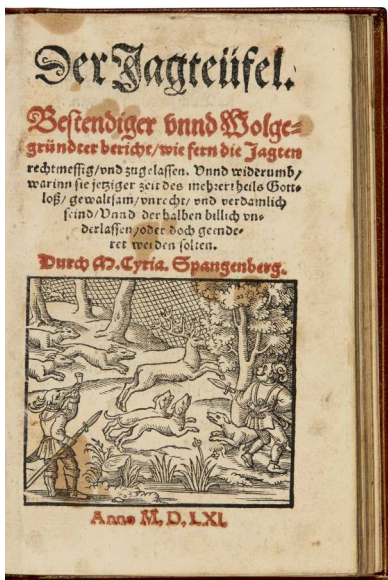 Der Jagteüfel.
Bestendiger vnnd Wolge-
gründter bericht/wie fern die Jagten
rechtmessig/vnd zugelassen. Vnnd widerumb/
warinn sie jetziger zeit des mehrertheils Gott-
loß/ gewaltsam/vnrecht/ vnd verdamlich
seind/Vnnd derhalben billich vn-
derlassen/oder doch geende-
ret werden solten.
Durch M. Cyria. Spangenberg.
Anno M, D, LXI.